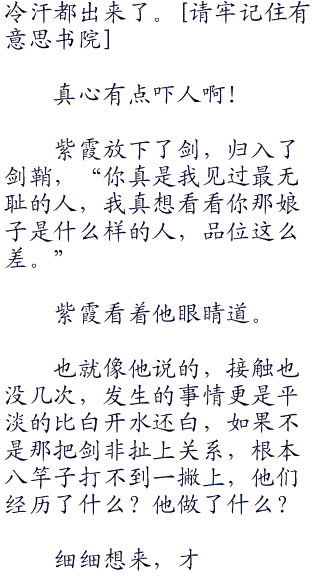 冷汗都出来了。[请牢记住有
意思书院]
真心有点吓人啊!
紫霞放下了剑，归入了
剑鞘，“你真是我见过最无
耻的人，我真想看看你那娘
子是什么样的人，品位这么
差。”
紫霞看着他眼睛道。
也就像他说的，接触也
没几次，发生的事情更是平
淡的比白开水还白，如果不
是那把剑非扯上关系，根本
八竿子打不到一撇上，他们
经历了什么？他做了什么？
细细想来，才